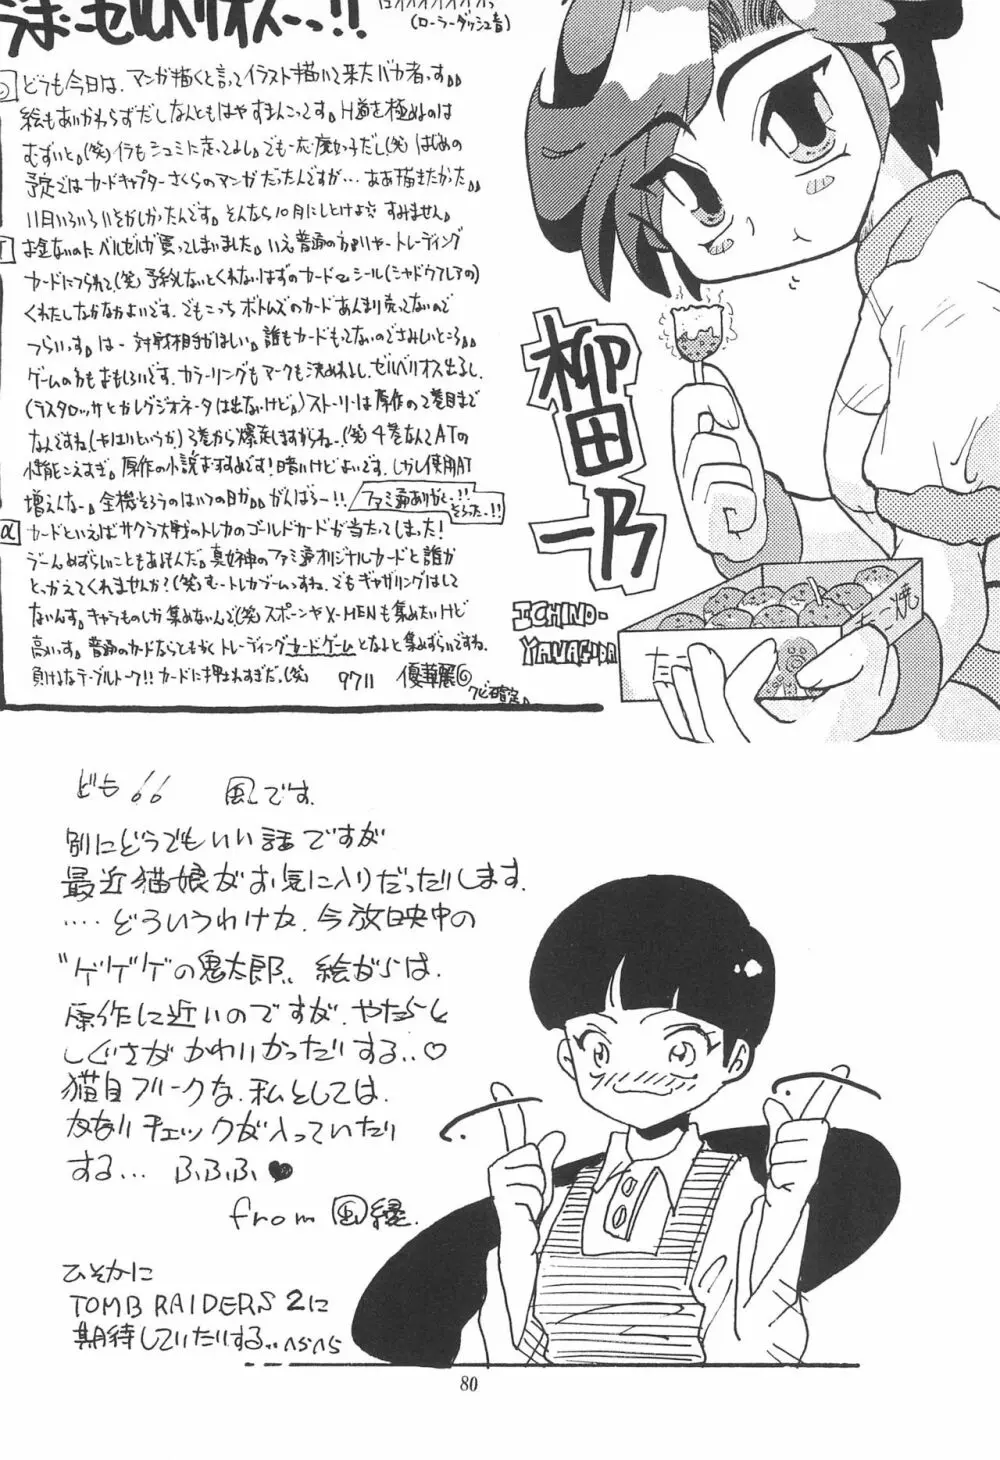 (ローラーダッシュ音)
どうも今日は、マンガ描くと言ってイラスト描いて来たバカ者っす。
絵もあいかわらずだしなんともはやすまんこってす。H道を極めるのは
むずいと。(笑)イラもシュミに走ってよし。でも一応魔女っ子だし(笑)はじめの
予定ではカードキャプターさくらのマンガだったんですが…ああ描きたかった。
11日いろいろいそがしかったんです。そんなら10月にしとけよ すみません。
お金ないのにベルゼルガ買ってしまいました。いえ普通の方 トレーディング
カードにつられて(笑)予約しないとくれないはずのカード シール(シャドウフレアの)
くれたしなかなかよいです。でもこっちボトムズのカードあんまり売ってないので
つらいっす。はー対戦相手がほしい。誰もカードもってないのでさみしいところ。
ゲームの方もおもしろいです。カラーリングもマークも決めれるし、ゼルベリオス出るし、
(ラスタロッサとかレグジオネータは出ないけど。)ストーリーは原作の2巻目まで
なんですね(やはりというか)3巻から爆走しますがね〜(笑)4巻なんてATの
性能こえすぎ。原作の小説おすすめです!暗いけどよいです。しかし使用AT
増えんなー。全機そろうのはいつの日か。がんばろー!!
ファミ通ありがとー!!
そろったー!!
カードといえばサクラ大戦のトレカのゴールドカードが当たってしまった!
うーんめずらしいこともあるもんだ。真女神のファミ通オリジナルカードと誰か
とっかえてくれませんか?(笑)むートレカブームっすね。でもギャザリングはして
ないんす。キャラものしか集めないんで(笑)スポーンやX-MENも集めたいけど
高いっす。普通のカードならともかくトレーディングカードゲームとなると集めずらいですね。
負けるなテーブルトーク!!カードに押されすぎだ。(笑)
97 11 優華麗
柳田一乃
ICHINO-
YANAGIDA
たこ焼
ども!! 風です.
別にどうでもいい話ですが
最近猫娘がお気に入りだったりします.
‥‥どういうわけか、今放映中の
"ゲゲゲの鬼太郎" 絵がらは、
原作に近いのですが、やたらと
しぐさがかわいかったりする..♡
猫目フリークな、私としては、
かなりチェックが入っていたり
する… ふふふ♥
from 風緑.
ひそかに
TOMB RAIDERS 2に
期待していたりする..へらへら
80